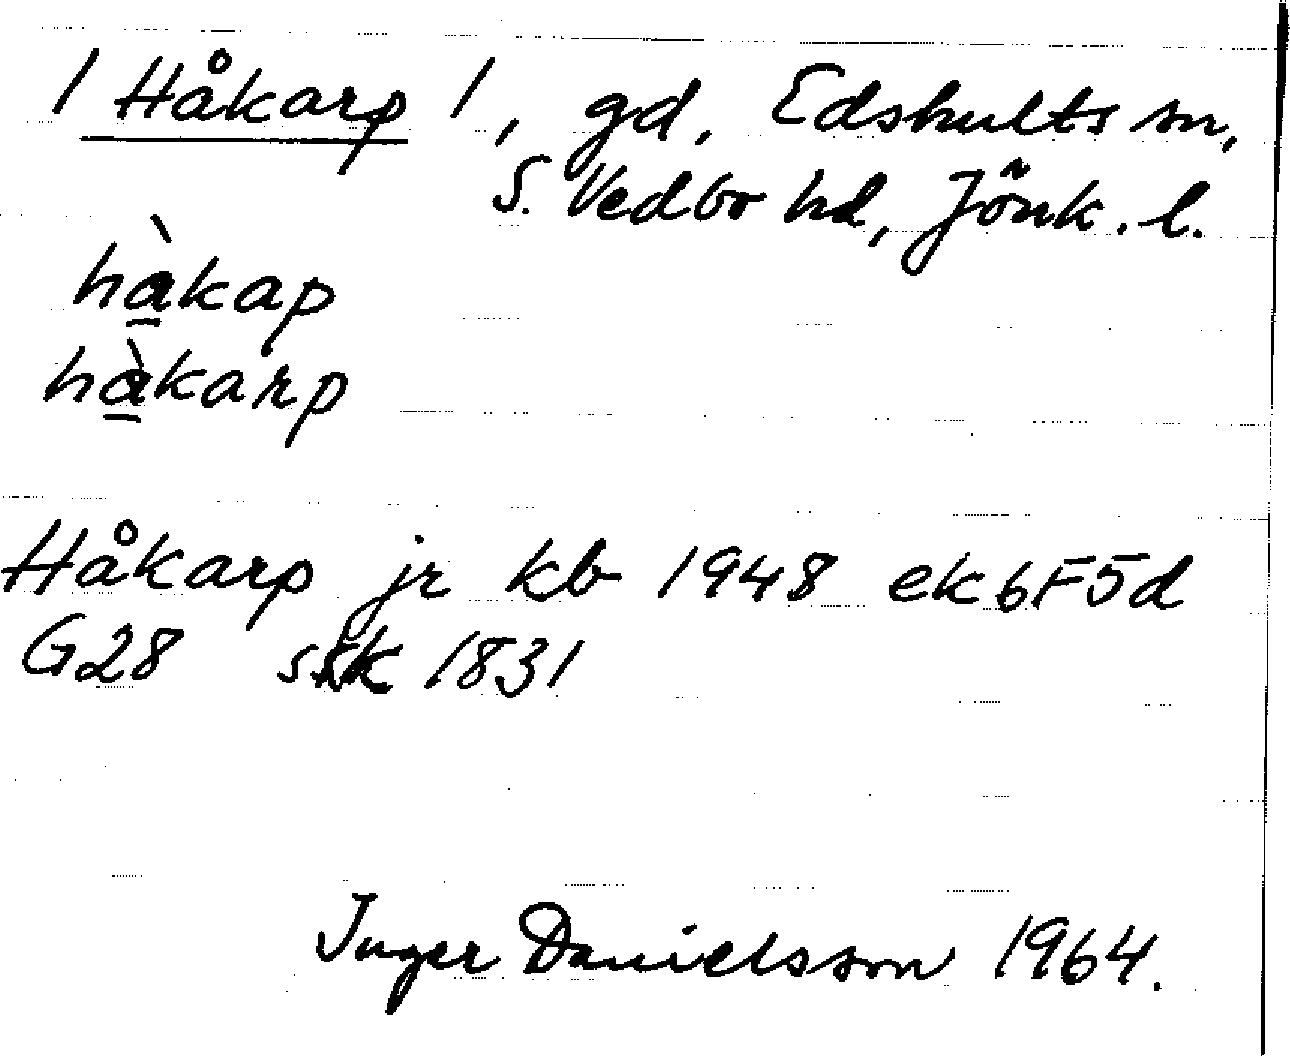 / Håkarp /, gd, Edshults sn,
S. Vedbo hd, Jönk. l.
hà̠kap
hà̠karp
Håkarp jr kb 1948 ek 6F5d
G28 ssk 1831
Inger Danielsson 1964.